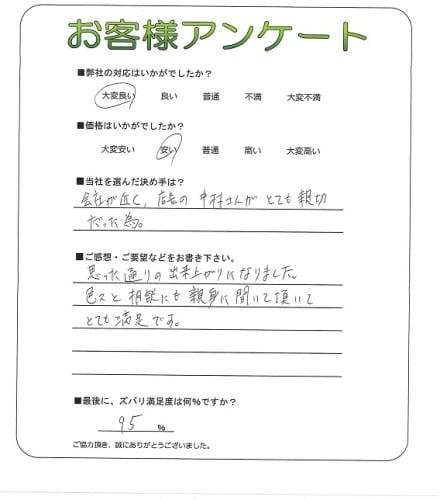 お客様アンケート
■弊社の対応はいかがでしたか？
大変良い 良い 普通 不満 大変不満
■価格はいかがでしたか？
大変安い 安い 普通 高い 大変高い
■当社を選んだ決め手は？
会社が近く、店長の中村さんがとても親切
だった為。
■ご感想・ご要望などをお書き下さい。
思った通りの出来上がりになりました。
色々と相談にも親身に聞いて頂いて
とても満足です。
■最後に、ズバリ満足度は何%ですか？
95 %
ご協力頂き、誠にありがとうございました。